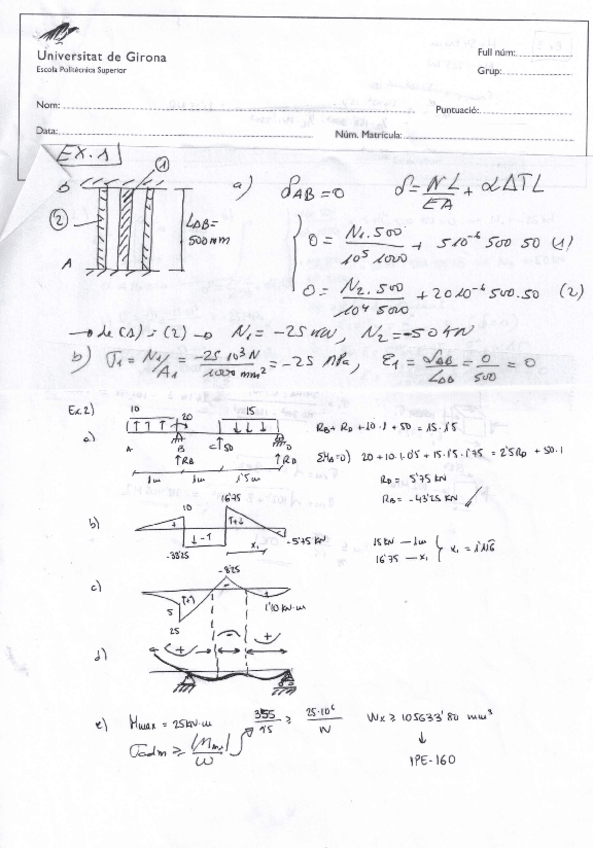 Universitat de Girona
Escola Politècnica Superior
Full núm:
Grup:
Nom:
Puntuació:
Data:
Núm. Matrícula:
EX.1
B
1
2
A
LAB=
500mm
a) δAB=0 δ=NL/EA + αΔTL
0 = N1.500/10⁵ 1000 + 5 10⁻⁶ 500 50 (1)
0 = N2.500/10⁴ 5000 + 20 10⁻⁶ 500.50 (2)
→ de (1) i (2) → N1 = -25 kN, N2 = -50 kN
b) σ1 = N1/A1 = -25 10³ N/1000 mm² = -25 MPa, ε1 = δAB/LAB = 0/500 = 0
Ex.2)
a)
10
20
15
A
B
C
50
D
RB
RD
1m
1m
1'5m
RB + RD + 10·1 + 50 = 15·1'5
ΣMB=0) 20 + 10·1·0'5 + 15·1'5·1'75 = 2'5RD + 50·1
RD = 5'75 kN
RB = -43'25 kN
b)
10
1675
+
-
-33'25
-5'75 kN
x1
15kN — 1m
16'75 — x1
x1 = 1'116
c)
-8'25
5
(+)
-
25
1'10 kN·m
d)
+
-
+
e) Mmax = 25kN·m
355/15 ≥ 25·10⁶/W
Wx ≥ 105633'80 mm³
σadm ≥ |Mmax|/W
IPE-160